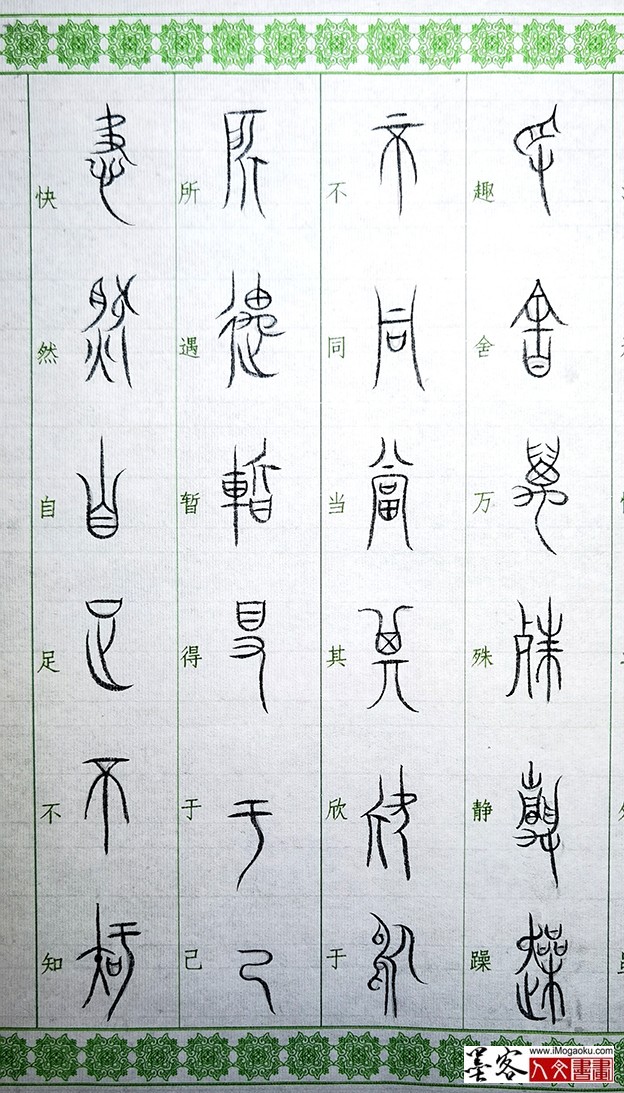 趣舍万殊静躁
不同当其欣于
所遇暂得于己
快然自足不知
墨客
www.iMogaoku.com
人文書畫